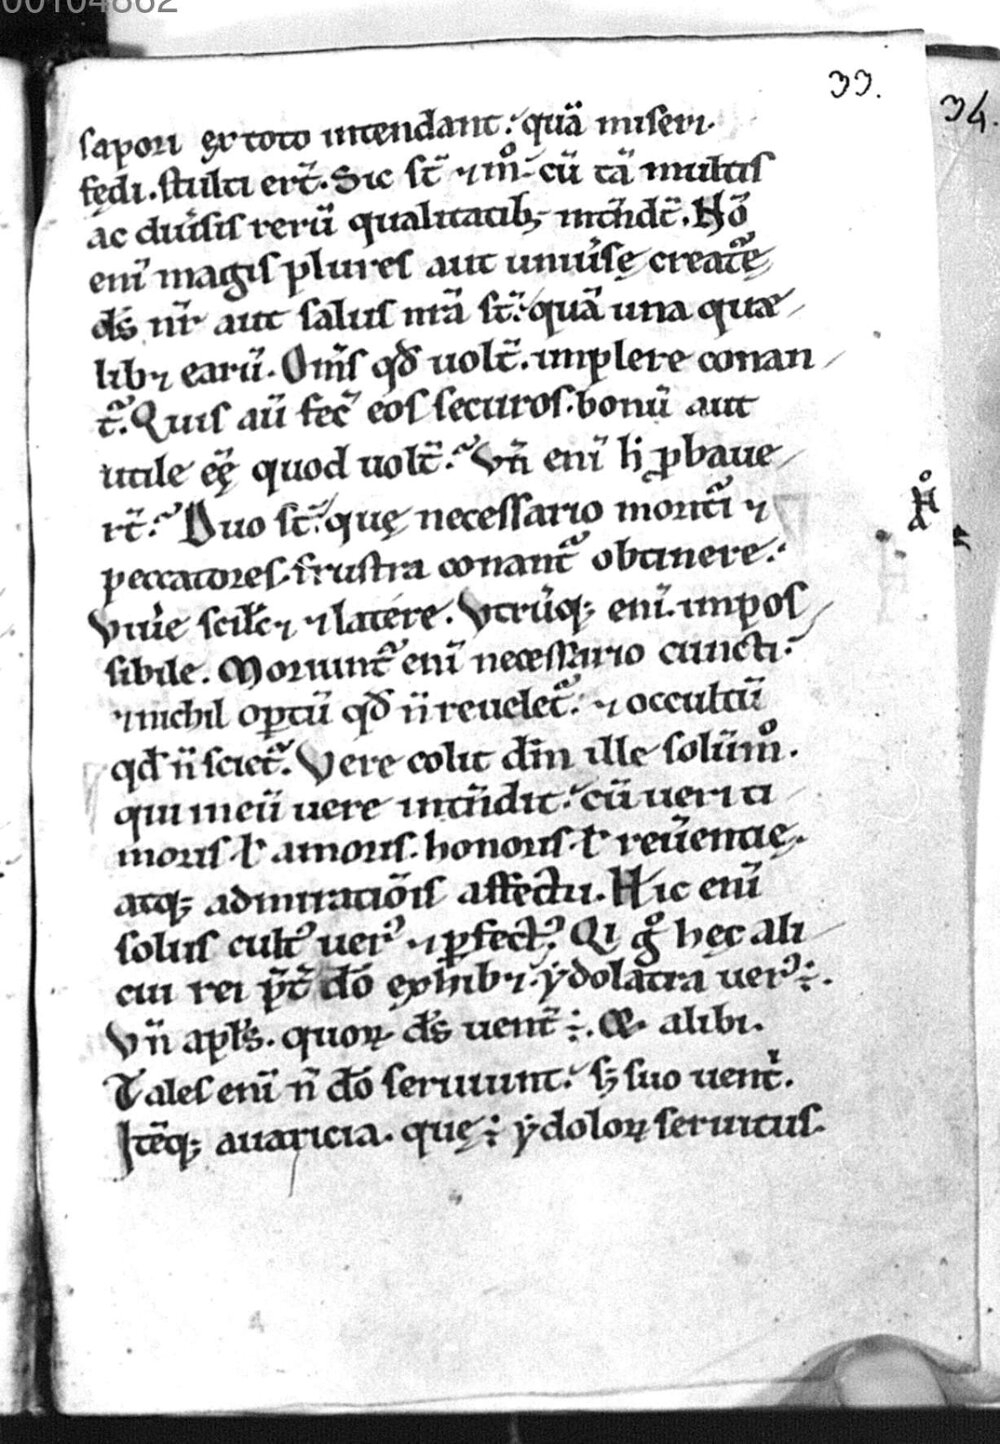 00104862
33.
34.
sapori ex toto intendant: quā miseri.
fędi. stulti erт̄. Sic st̄ ⁊ m̊ cū tā multis
ac diūsis rerū qualitatib; intn̄dt̄. Nō
enī magis plures aut uniūsę creatᷓę
ds̄ nr̄ aut salus nrā st̄: quā una quæ
libꝫ earū. Om̄s qđ uolт̄. implere conan
tᷓ. Quis aū fec̄ eos securos. bonū aut
utile eę̄ quod uolт̄? Vn̄ enī hi ꝓbaue
rт̄? Duo st̄: quę necessario moritᷓi ⁊
peccatores. frustra conantᷓ obtinere.
Viuͥe scilicꝫ ⁊ latere. Vtrūq; enī. impos
sibile. Moriuntᷓ enī necessario cuncti:
⁊ nichil optū qđ n̄ reueletᷓ. ⁊ occultū
qđ n̄ scietᷓ. Vere colit dn̄m ille solūm̊.
qui in eū uere intn̄dit: cū ueri ti
moris ł amoris. honoris. ł reūentię.
atq; admiratiōis affectu. Hic enī
solus cultꝰ uerꝰ ⁊ ꝑfectꝰ. Qi gͦ hęc ali
cui rei p̄t̄ dō exhibꝫ. ẏdolatra uerꝰ ÷.
Vn̄ apłs. quoꝝ ds̄ uenт̄ ÷. & alibi.
Tales enī n̄ dō seruiunt: sꝫ suo uent͛.
Itēq; auaricia. quę ÷ ẏdoloꝝ seruitus.